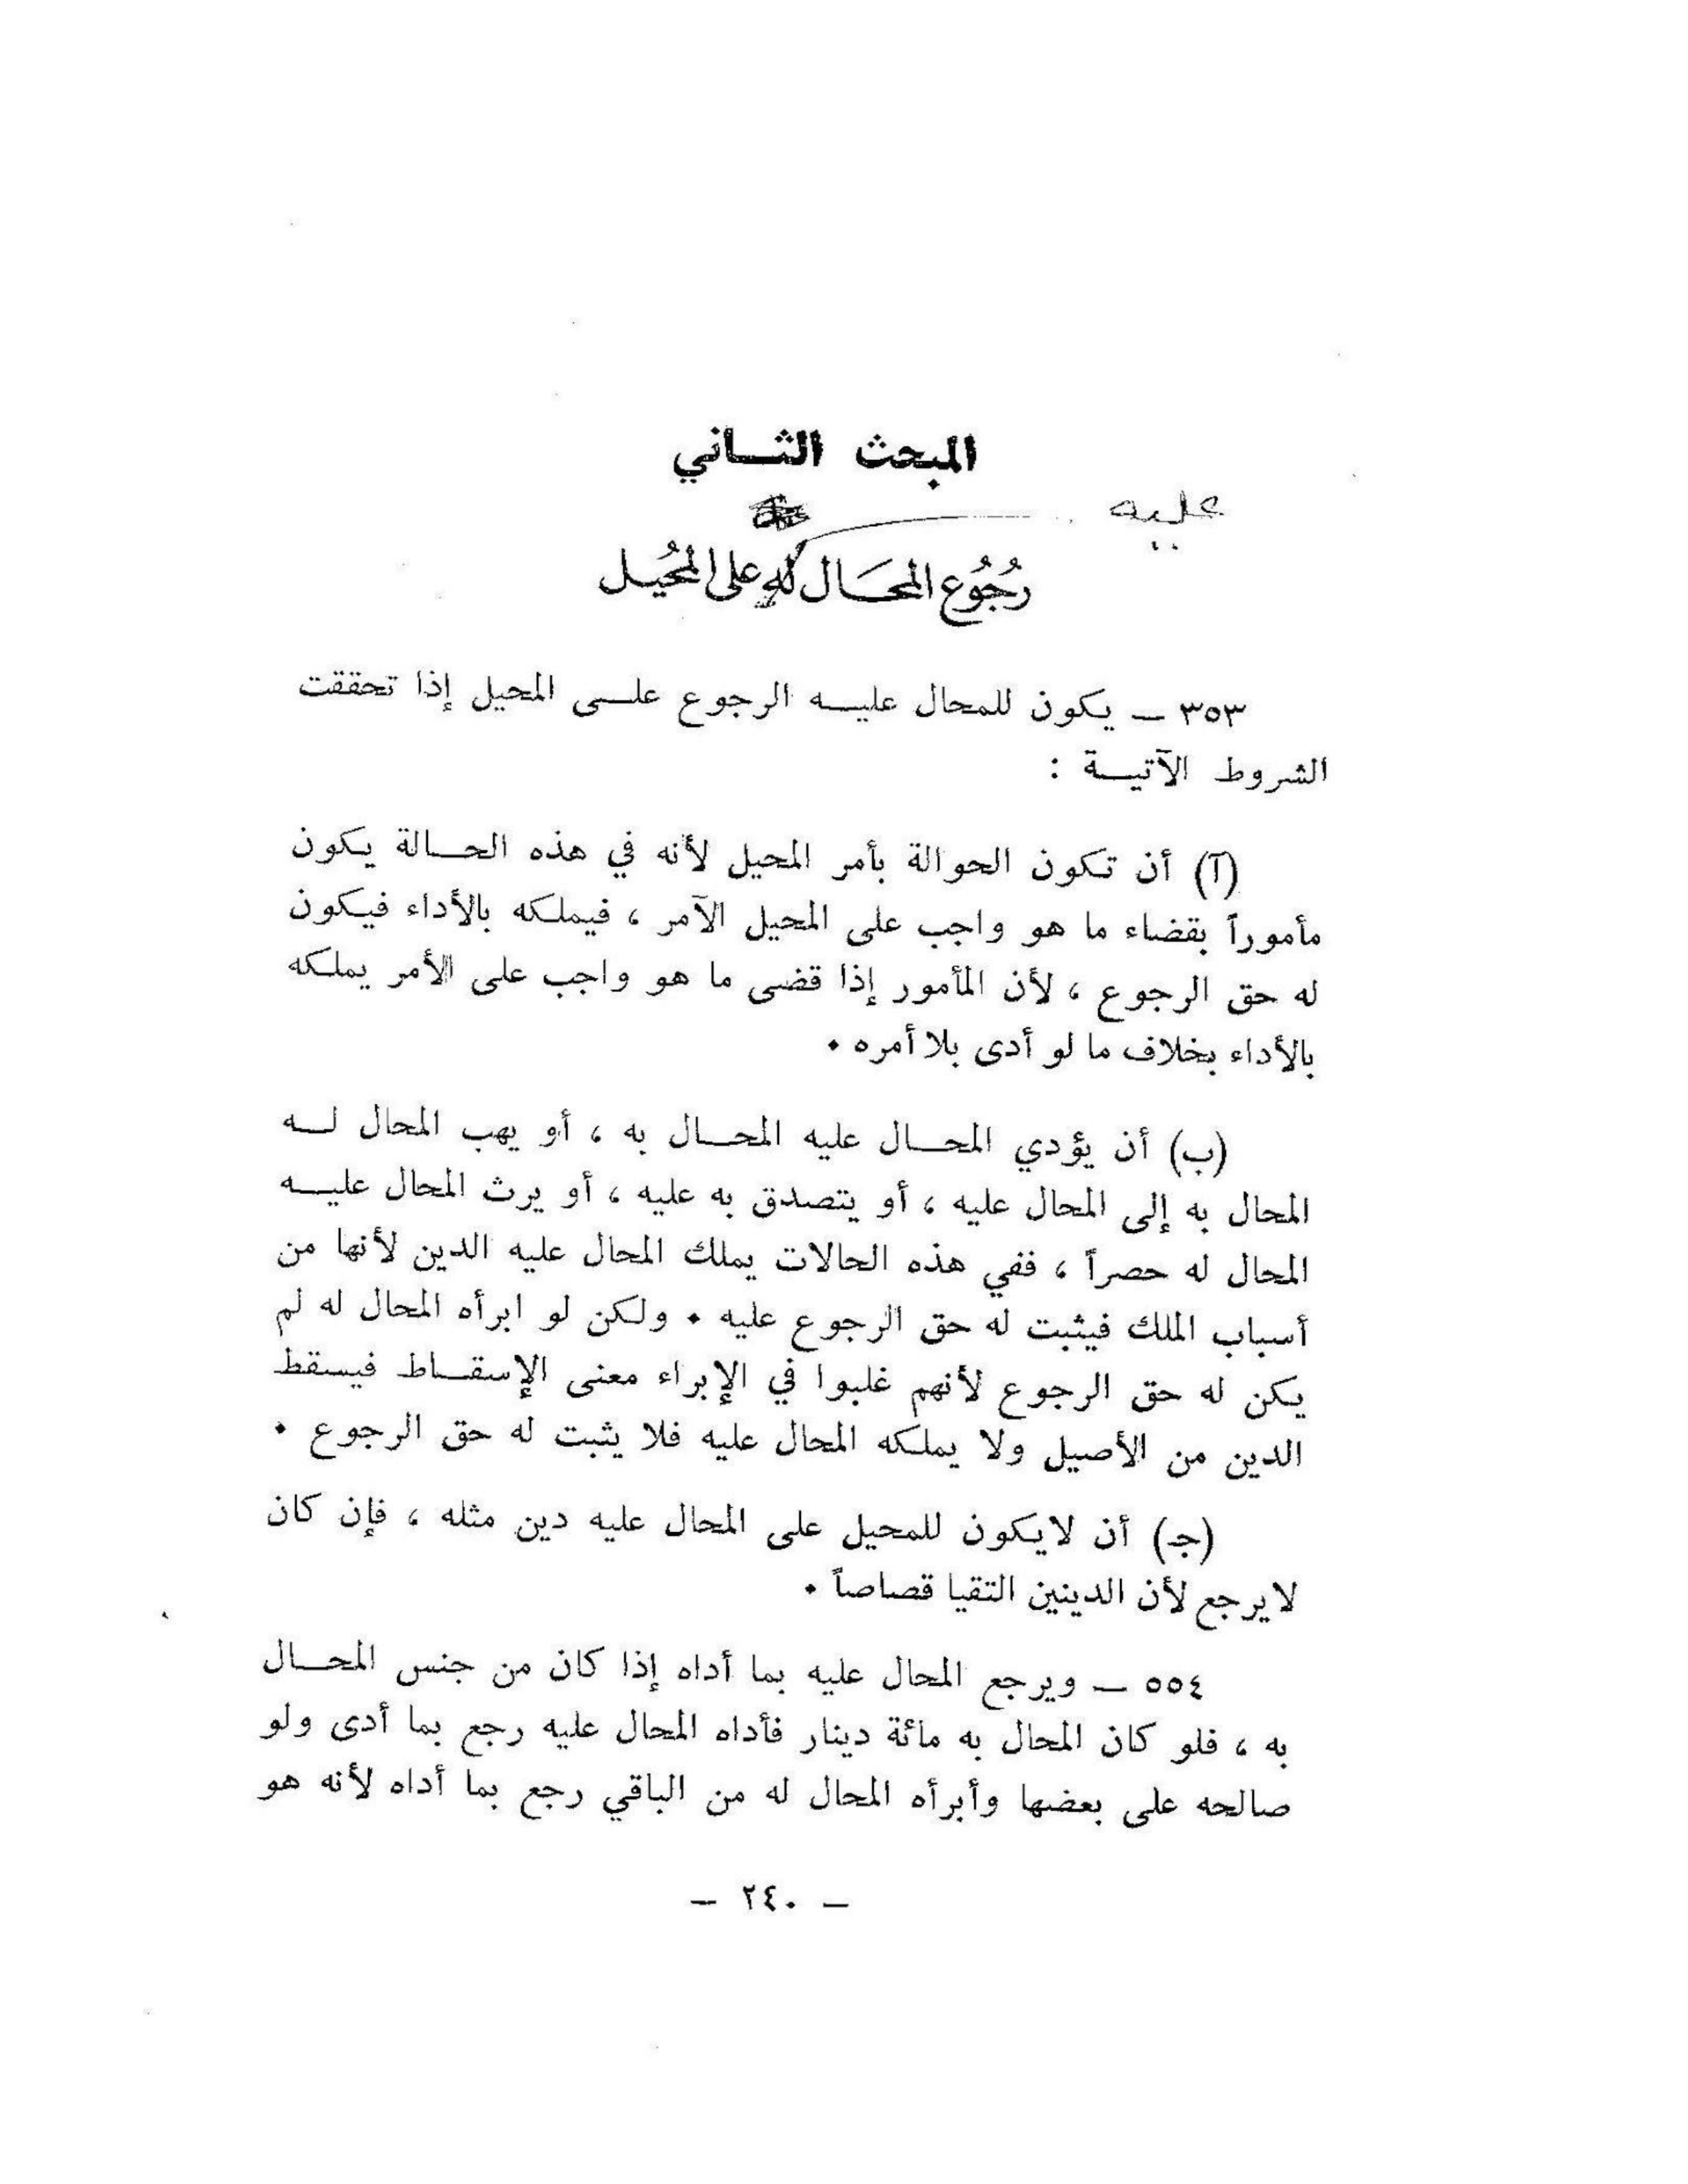 المبحث الثـاني
عليه
رُجُوع المحَال له على المُحيل
٣٥٣ ـ يكون للمحال عليـه الرجوع علـى المحيل إذا تحققت
الشروط الآتيـة :
(آ) أن تكون الحوالة بأمر المحيل لأنه في هذه الحـالة يكون
مأموراً بقضاء ما هو واجب على المحيل الآمر ، فيملكه بالأداء فيكون
له حق الرجوع ، لأن المأمور إذا قضى ما هو واجب على الأمر يملكه
بالأداء بخلاف ما لو أدى بلا أمره .
(ب) أن يؤدي المحـال عليه المحـال به ، أو يهب المحال لـه
المحال به إلى المحال عليه ، أو يتصدق به عليه ، أو يرث المحال عليـه
المحال له حصراً ، ففي هذه الحالات يملك المحال عليه الدين لأنها من
أسباب الملك فيثبت له حق الرجوع عليه . ولكن لو ابرأه المحال له لم
يكن له حق الرجوع لأنهم غلبوا في الإبراء معنى الإسقـاط فيسقط
الدين من الأصيل ولا يملكه المحال عليه فلا يثبت له حق الرجوع .
(جـ) أن لايكون للمحيل على المحال عليه دين مثله ، فإن كان
لايرجع لأن الدينين التقيا قصاصاً .
٥٥٤ ـ ويرجع المحال عليه بما أداه إذا كان من جنس المحـال
به ، فلو كان المحال به مائة دينار فأداه المحال عليه رجع بما أدى ولو
صالحه على بعضها وأبرأه المحال له من الباقي رجع بما أداه لأنه هو
ـ ٢٤٠ ـ